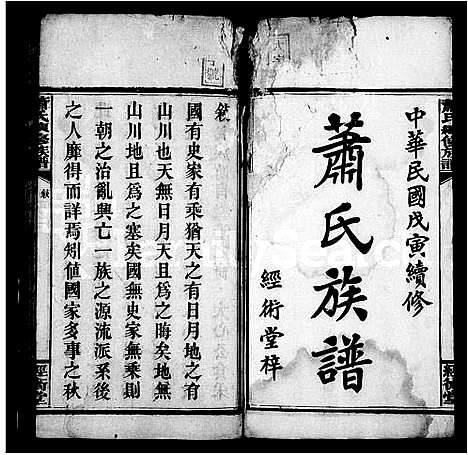 中華民國戊寅續修
蕭氏族譜
經術堂梓
敘
國有史家有乘猶天之有日月地之有
山川也天無日月天且為之晦矣地無
山川地且為之塞矣國無史家無乘則
一朝之治亂與亡一族之源流派系後
之人靡得而詳焉矧值國家多事之秋
蕭氏續修族譜
敘
經術堂
號